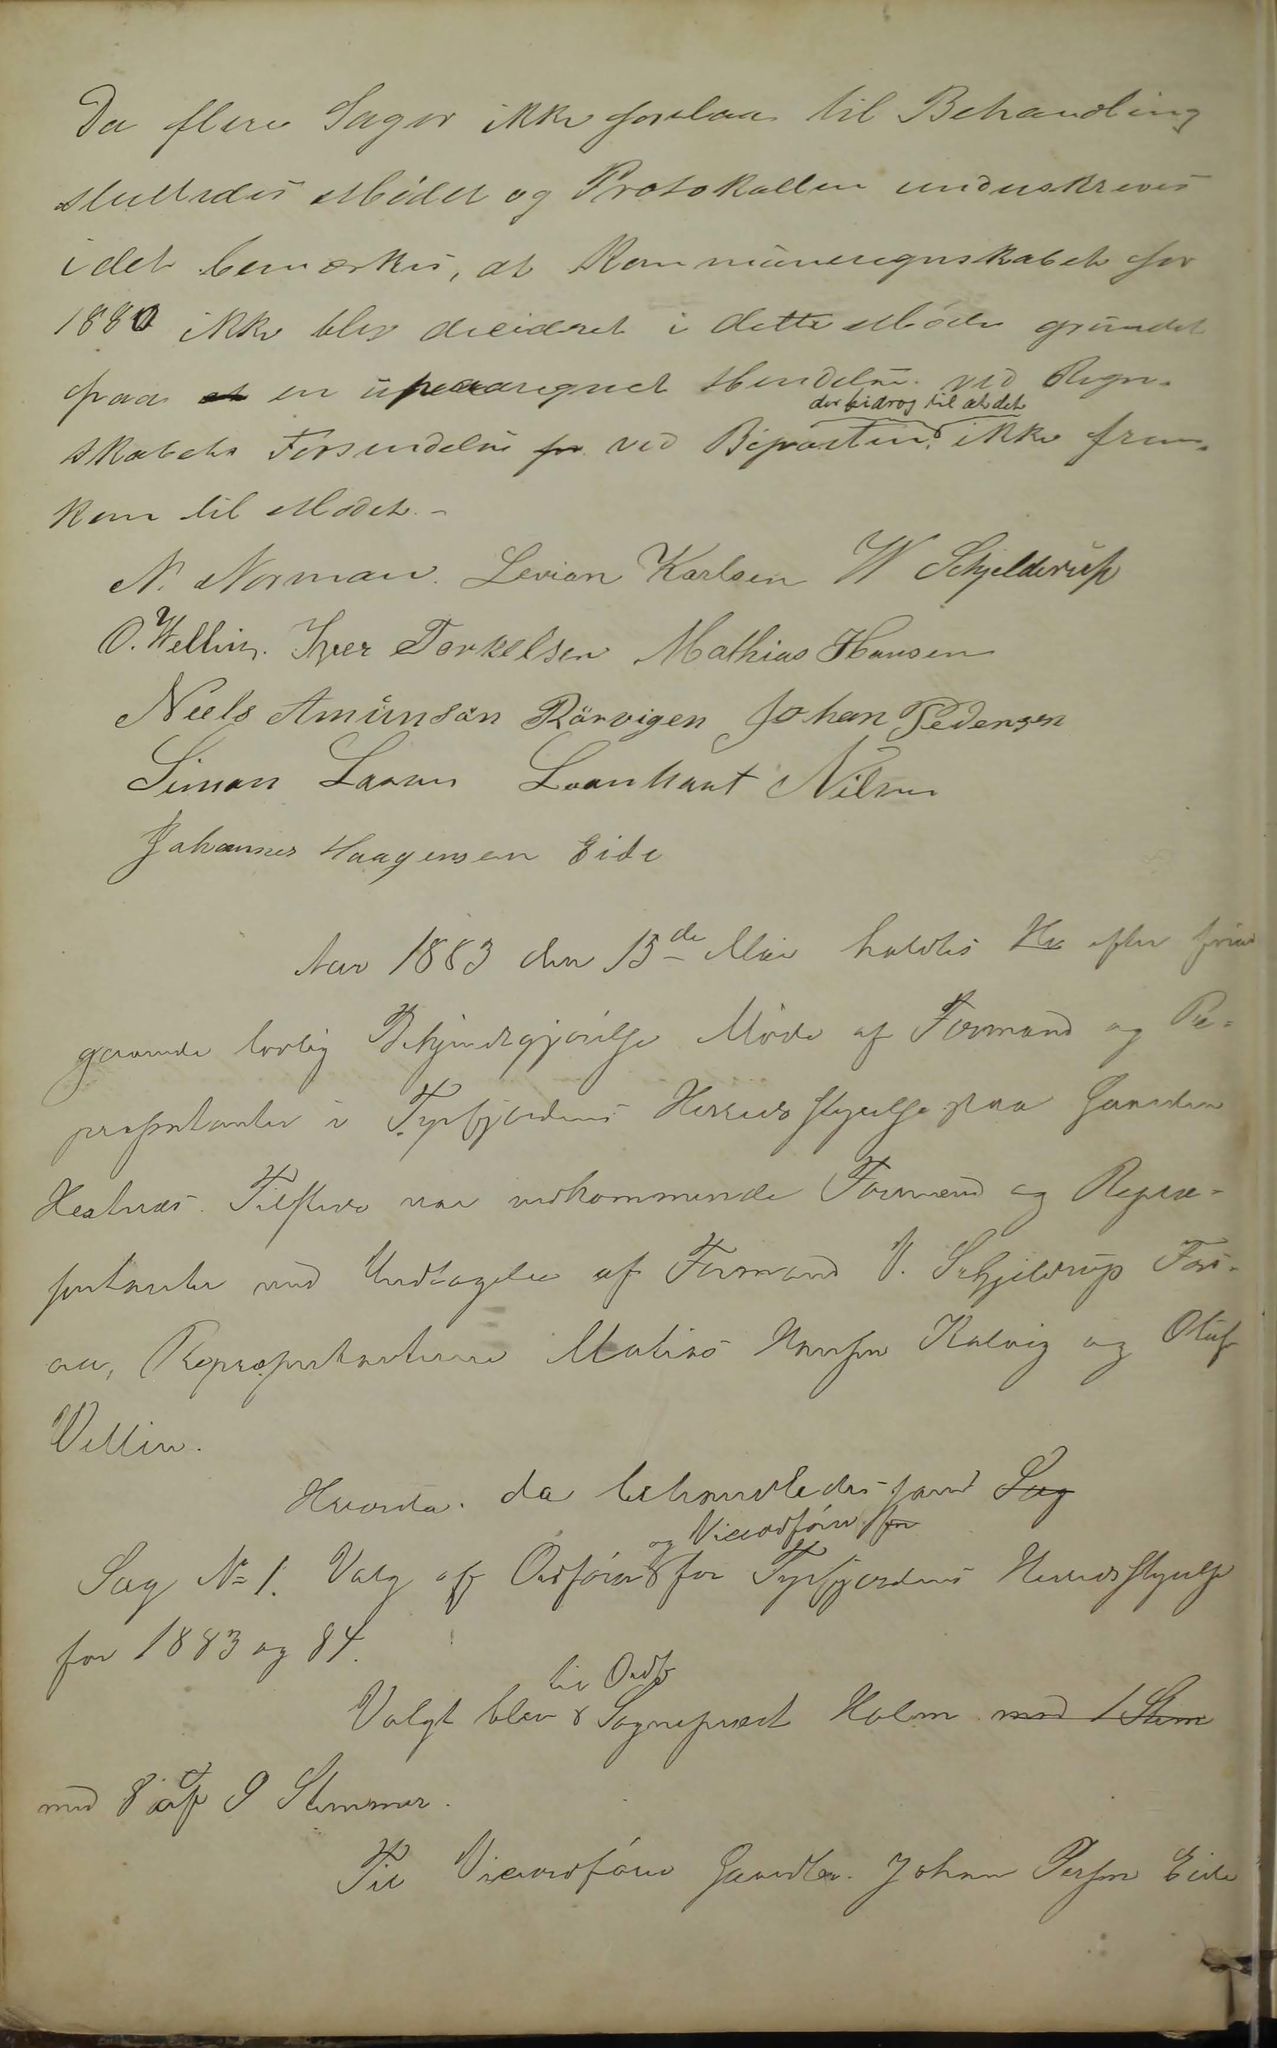 Da flere Sager ikke forelaa til Behandling
sluttedes Mödet og Protokollen underskreves
idet bemærkes, at Kommuneregnskabet for
1880 ikke blev decideret i dette Möde grundet
paa at en upaaregnet Hendelse ved Regn-
der bidrog til at det
skabets Forsendelse fr ved Biposten, ikke frem-
kom til Mödet.-
N. Norman. Levion Karlsen W Schjelderup
O. Wellin. Iver Torkelsen Mathias Hansen
Neels Amünsån Rörvigen Johan Pedersen
Simon Larsen Leonhart Nilsen
Johannes Haagensen Eide
Aar 1883 den 15de Mai holdtes He efter fore-
gaaende lovlig Bekjendtgjörelse Möde af Formænd og Re-
præsentanter i Tysfjordens Herredsstyrelse paa Gaarden
Hestnes. Tilstede var vedkommende Formænd og Repræ-
sentanter med Undtagelse af Formand V. Schjeldrup Kors-
, Repræsentanterne Matias Hansen Kalvig og Oluf
Vellin.
Hvorda. da behandledes saad Sag
og Viceordförer for
Sag No 1. Valg af Ordförer for Tysfjordens Herredsstyrelse
for 1883 og 84.
til Ordf
Valgt blev Sogneprest Holm med 1 Stem
med 8 af 9 Stemmer.
Til Viceordförer Gaardbr. Johan Persen Eide